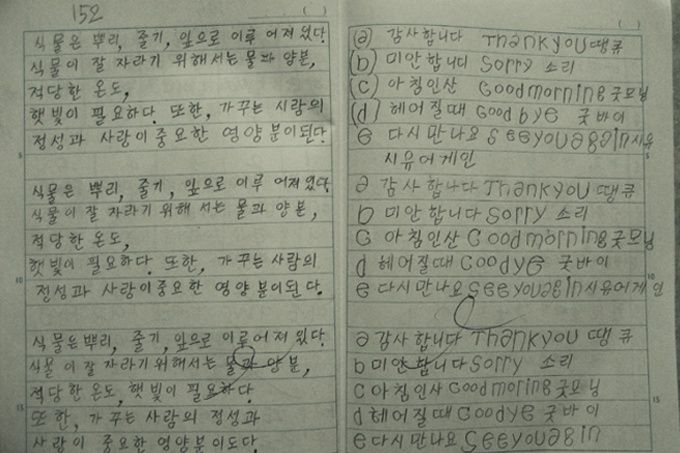 152
식물은 뿌리, 줄기, 잎으로 이루 어져 있다.
식물이 잘 자라기 위해서는 물과 양분,
적당한 온도,
햇빛이 필요하다. 또한, 가꾸는 사람의
정성과 사랑이 중요한 영양분이된다.
식물은 뿌리, 줄기, 잎으로 이루 어져 있다
식물이 잘 자라기 위해 서는 물과 양분,
적당한 온도,
햇빛이 필요하다. 또한, 가꾸는 사람의
정성과 사랑이 중요한 영양 분이된 다.
식물은뿌리, 줄기, 잎으로 이루어져 있다.
식물이 잘 자라기 위해서는 물과 양분,
적당한 온도, 햇빛이 필요하다.
또 한, 가 꾸는 사람의 정성과
사랑이 중요한 영양분이도다.
(a) 감사합니다 Thank you 땡큐
(b) 미안합니다 Sorry 소리
(c) 아침인산 Good morning 굿모닝
(d) 헤어질때 Good bye 굿바이
e 다시만나요 See you again 시유
시유어게인
a 감사합니다 Thank you 땡큐
b 미안합니다 Sorry 소리
c 아침인산 Good morning 굿모닝
d 헤어질때 Goodye 굿바이
e 다시만나요 See you agin 시유어게인
a 감사합니다 Thank you 땡큐
b 미안합니다 Sorry 소리
c 아침인사 Good morning 굿모닝
d 헤어질때 Goodye 굿바이
e 다시만나요 See you agin